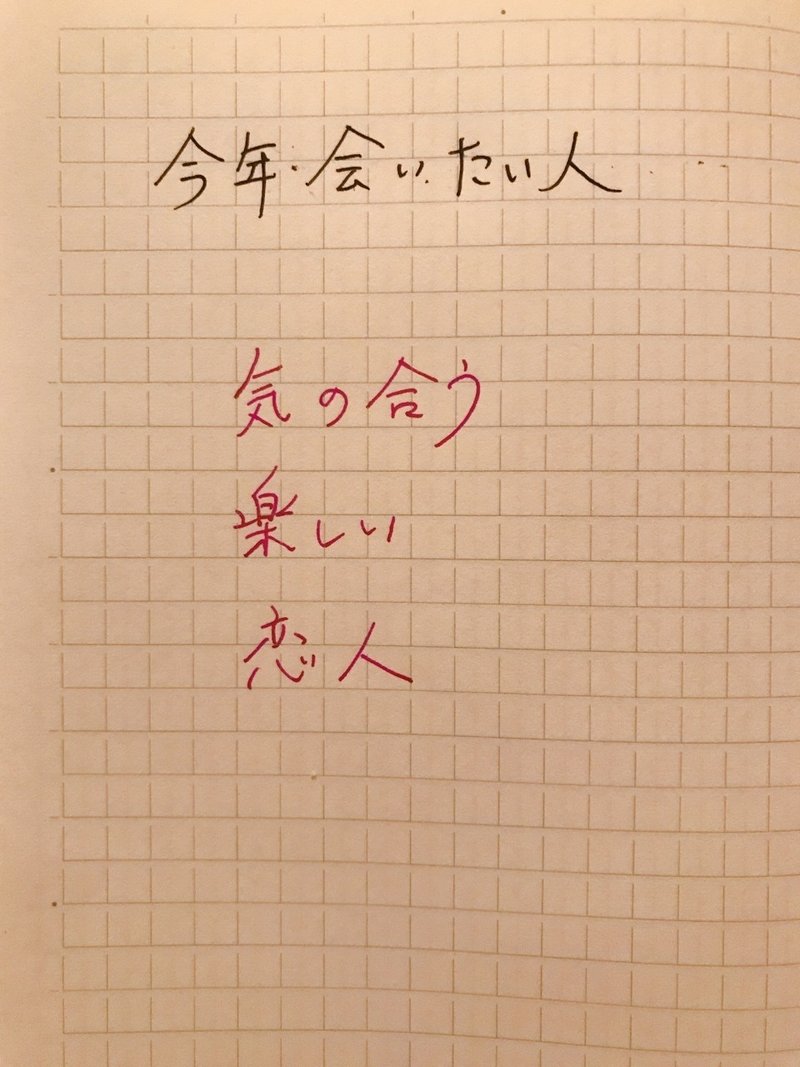 今年.会いたい人...
気の合う
楽しい
恋人